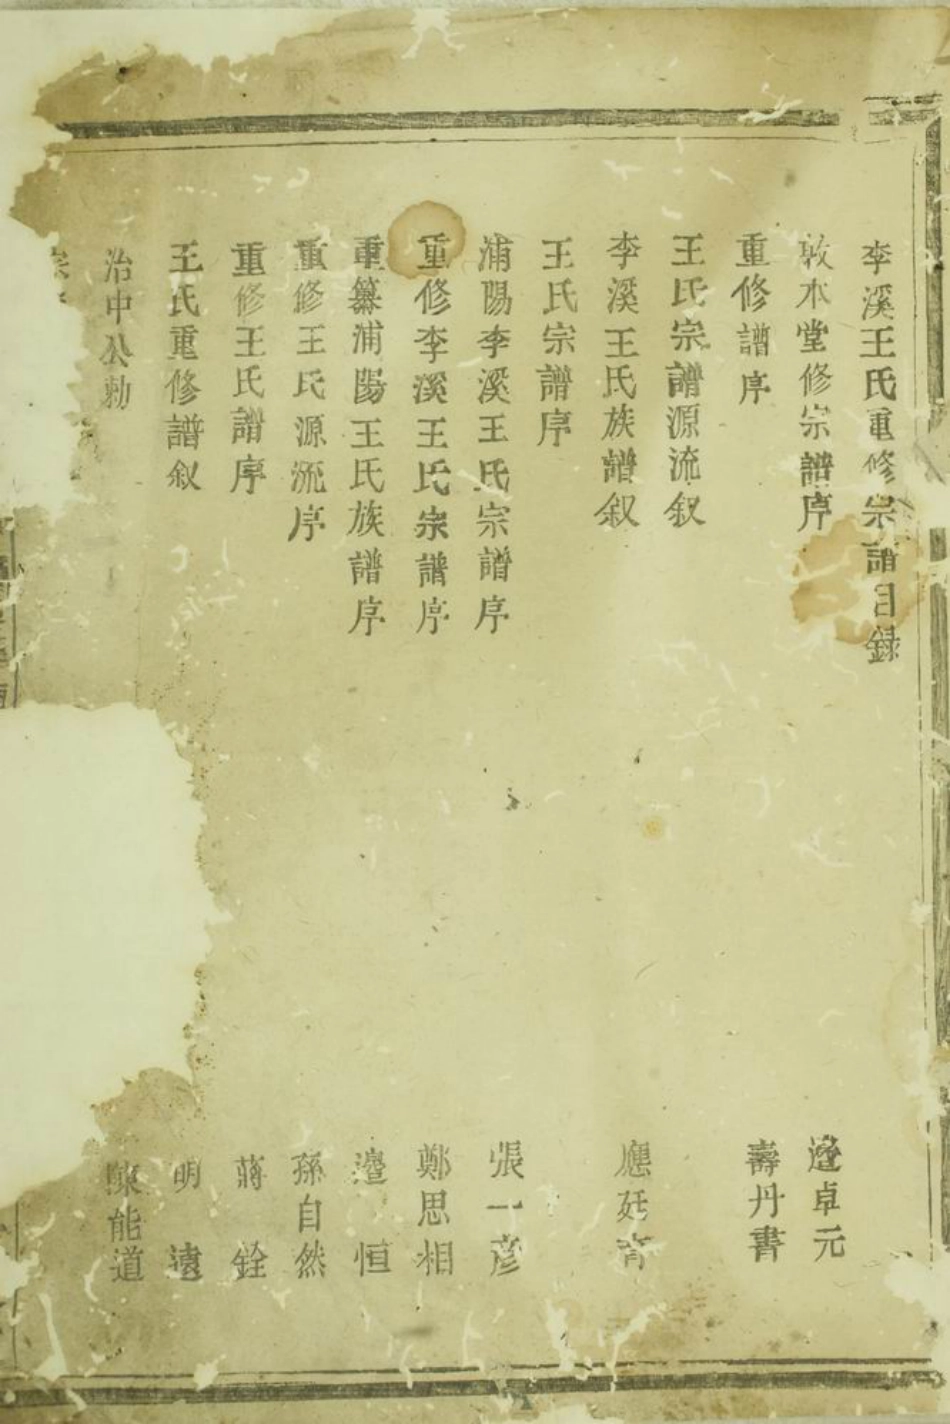 李溪王氏重修宗譜目録
敦本堂修宗譜序 邉卓元
重修譜序 壽丹書
王氏宗譜源流叙
李溪王氏族譜叙 應廷育
王氏宗譜序
浦陽李溪王氏宗譜序 張一彦
重修李溪王氏宗譜序 鄭思相
重纂浦陽王氏族譜序 邉恒
重修王氏源流序 孫自然
重修王氏譜序 蔣銓
王氏重修譜叙 明遠
治中公勅 陳能道